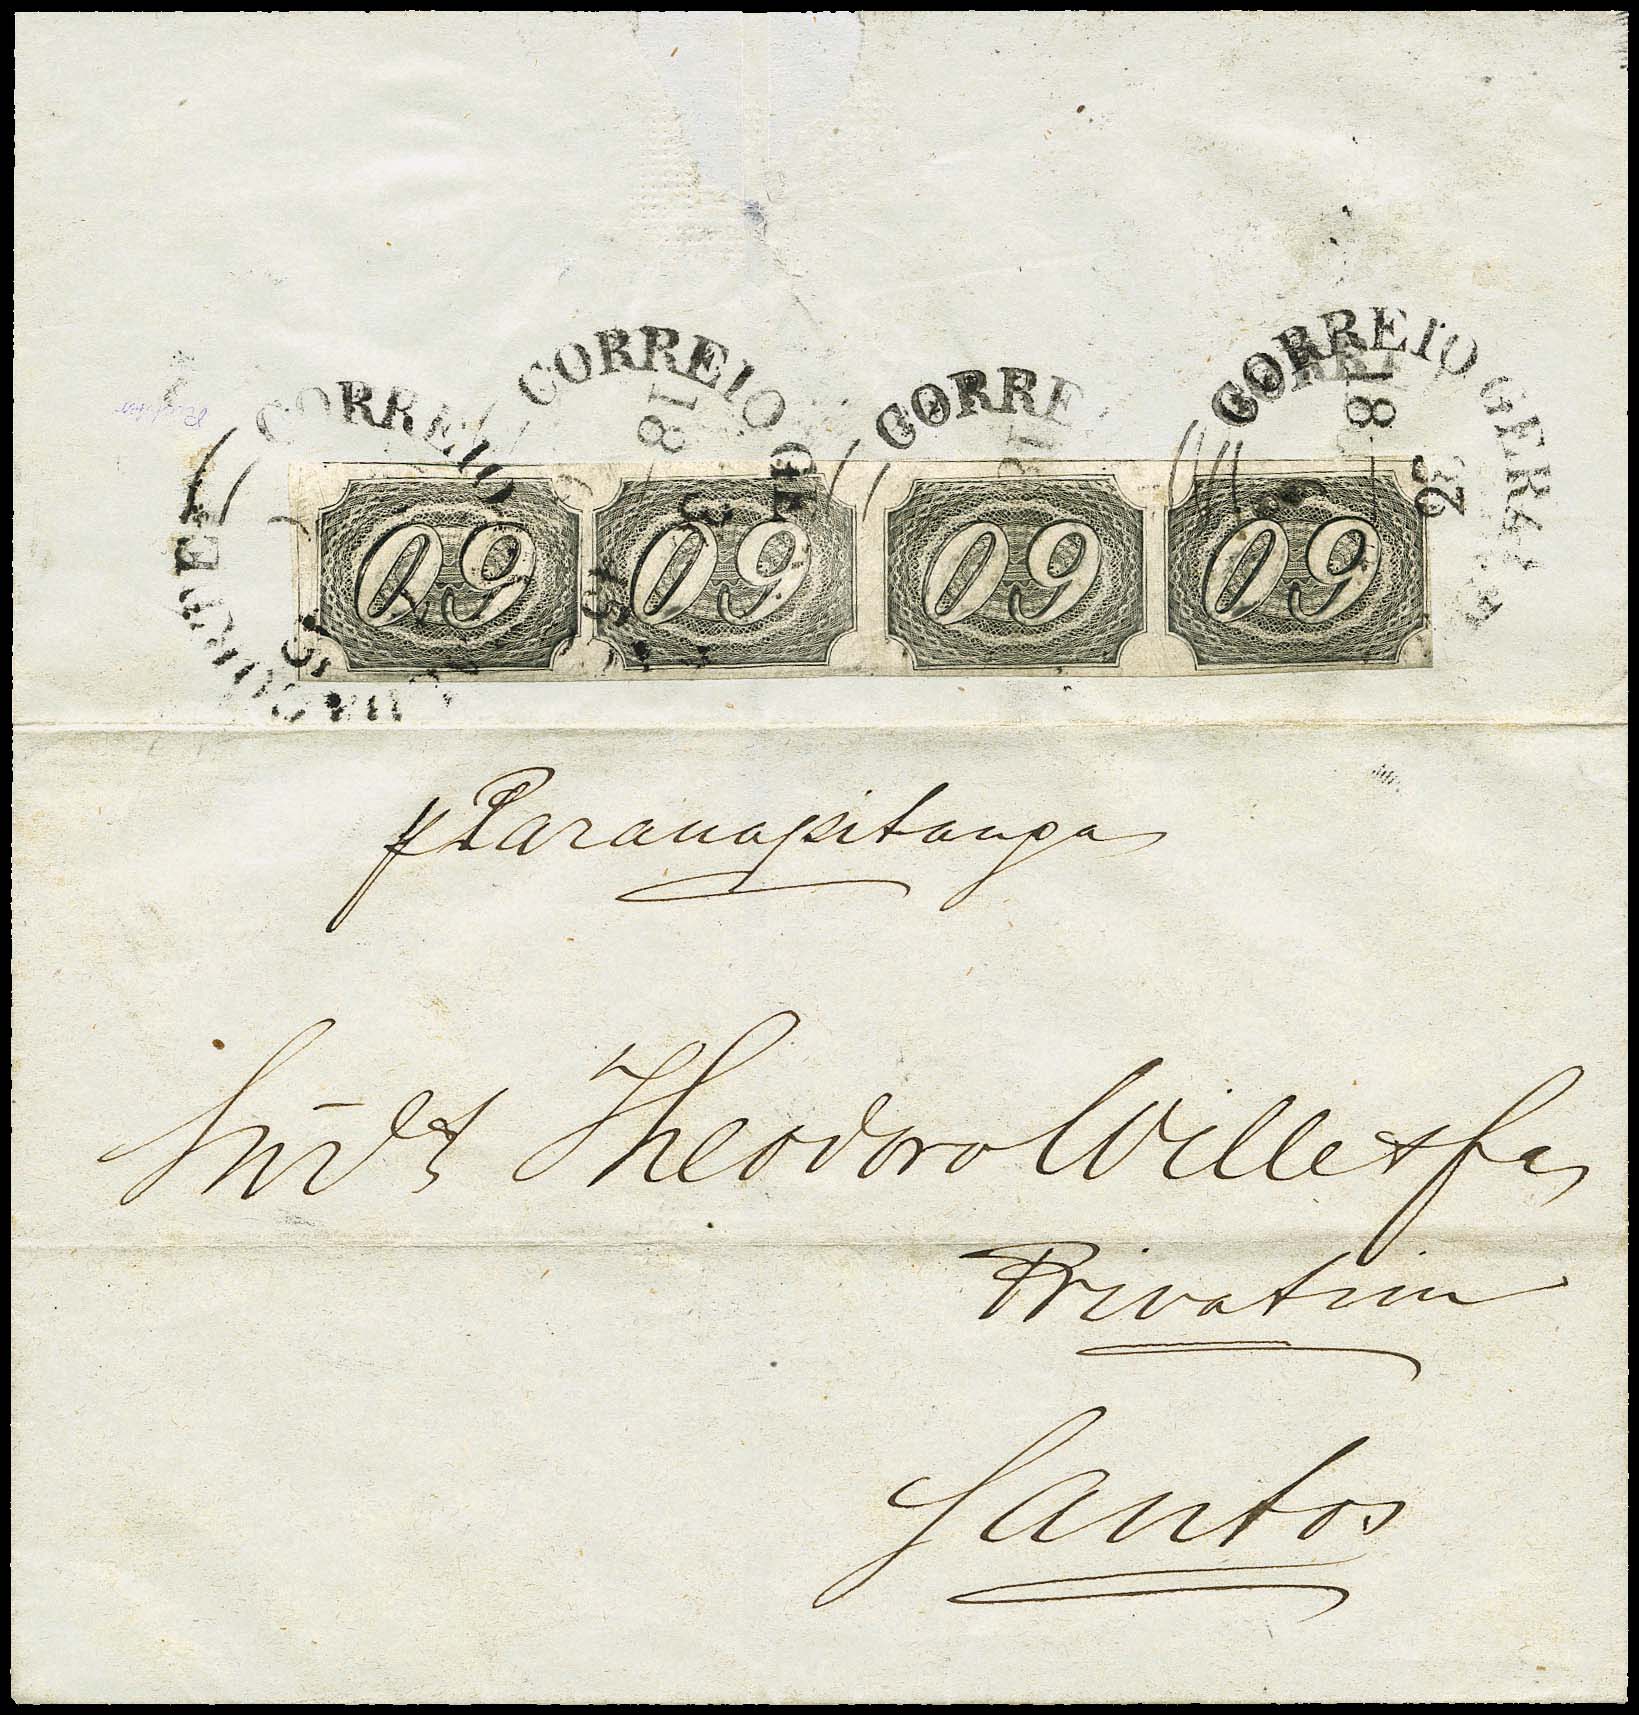 CORREIO CORREIO G CORRE CORREIO GERAL
18 18
23
60 60 60 60
p Paranapitanga
Theodoro Wille & Ca,
Privatim
Santos